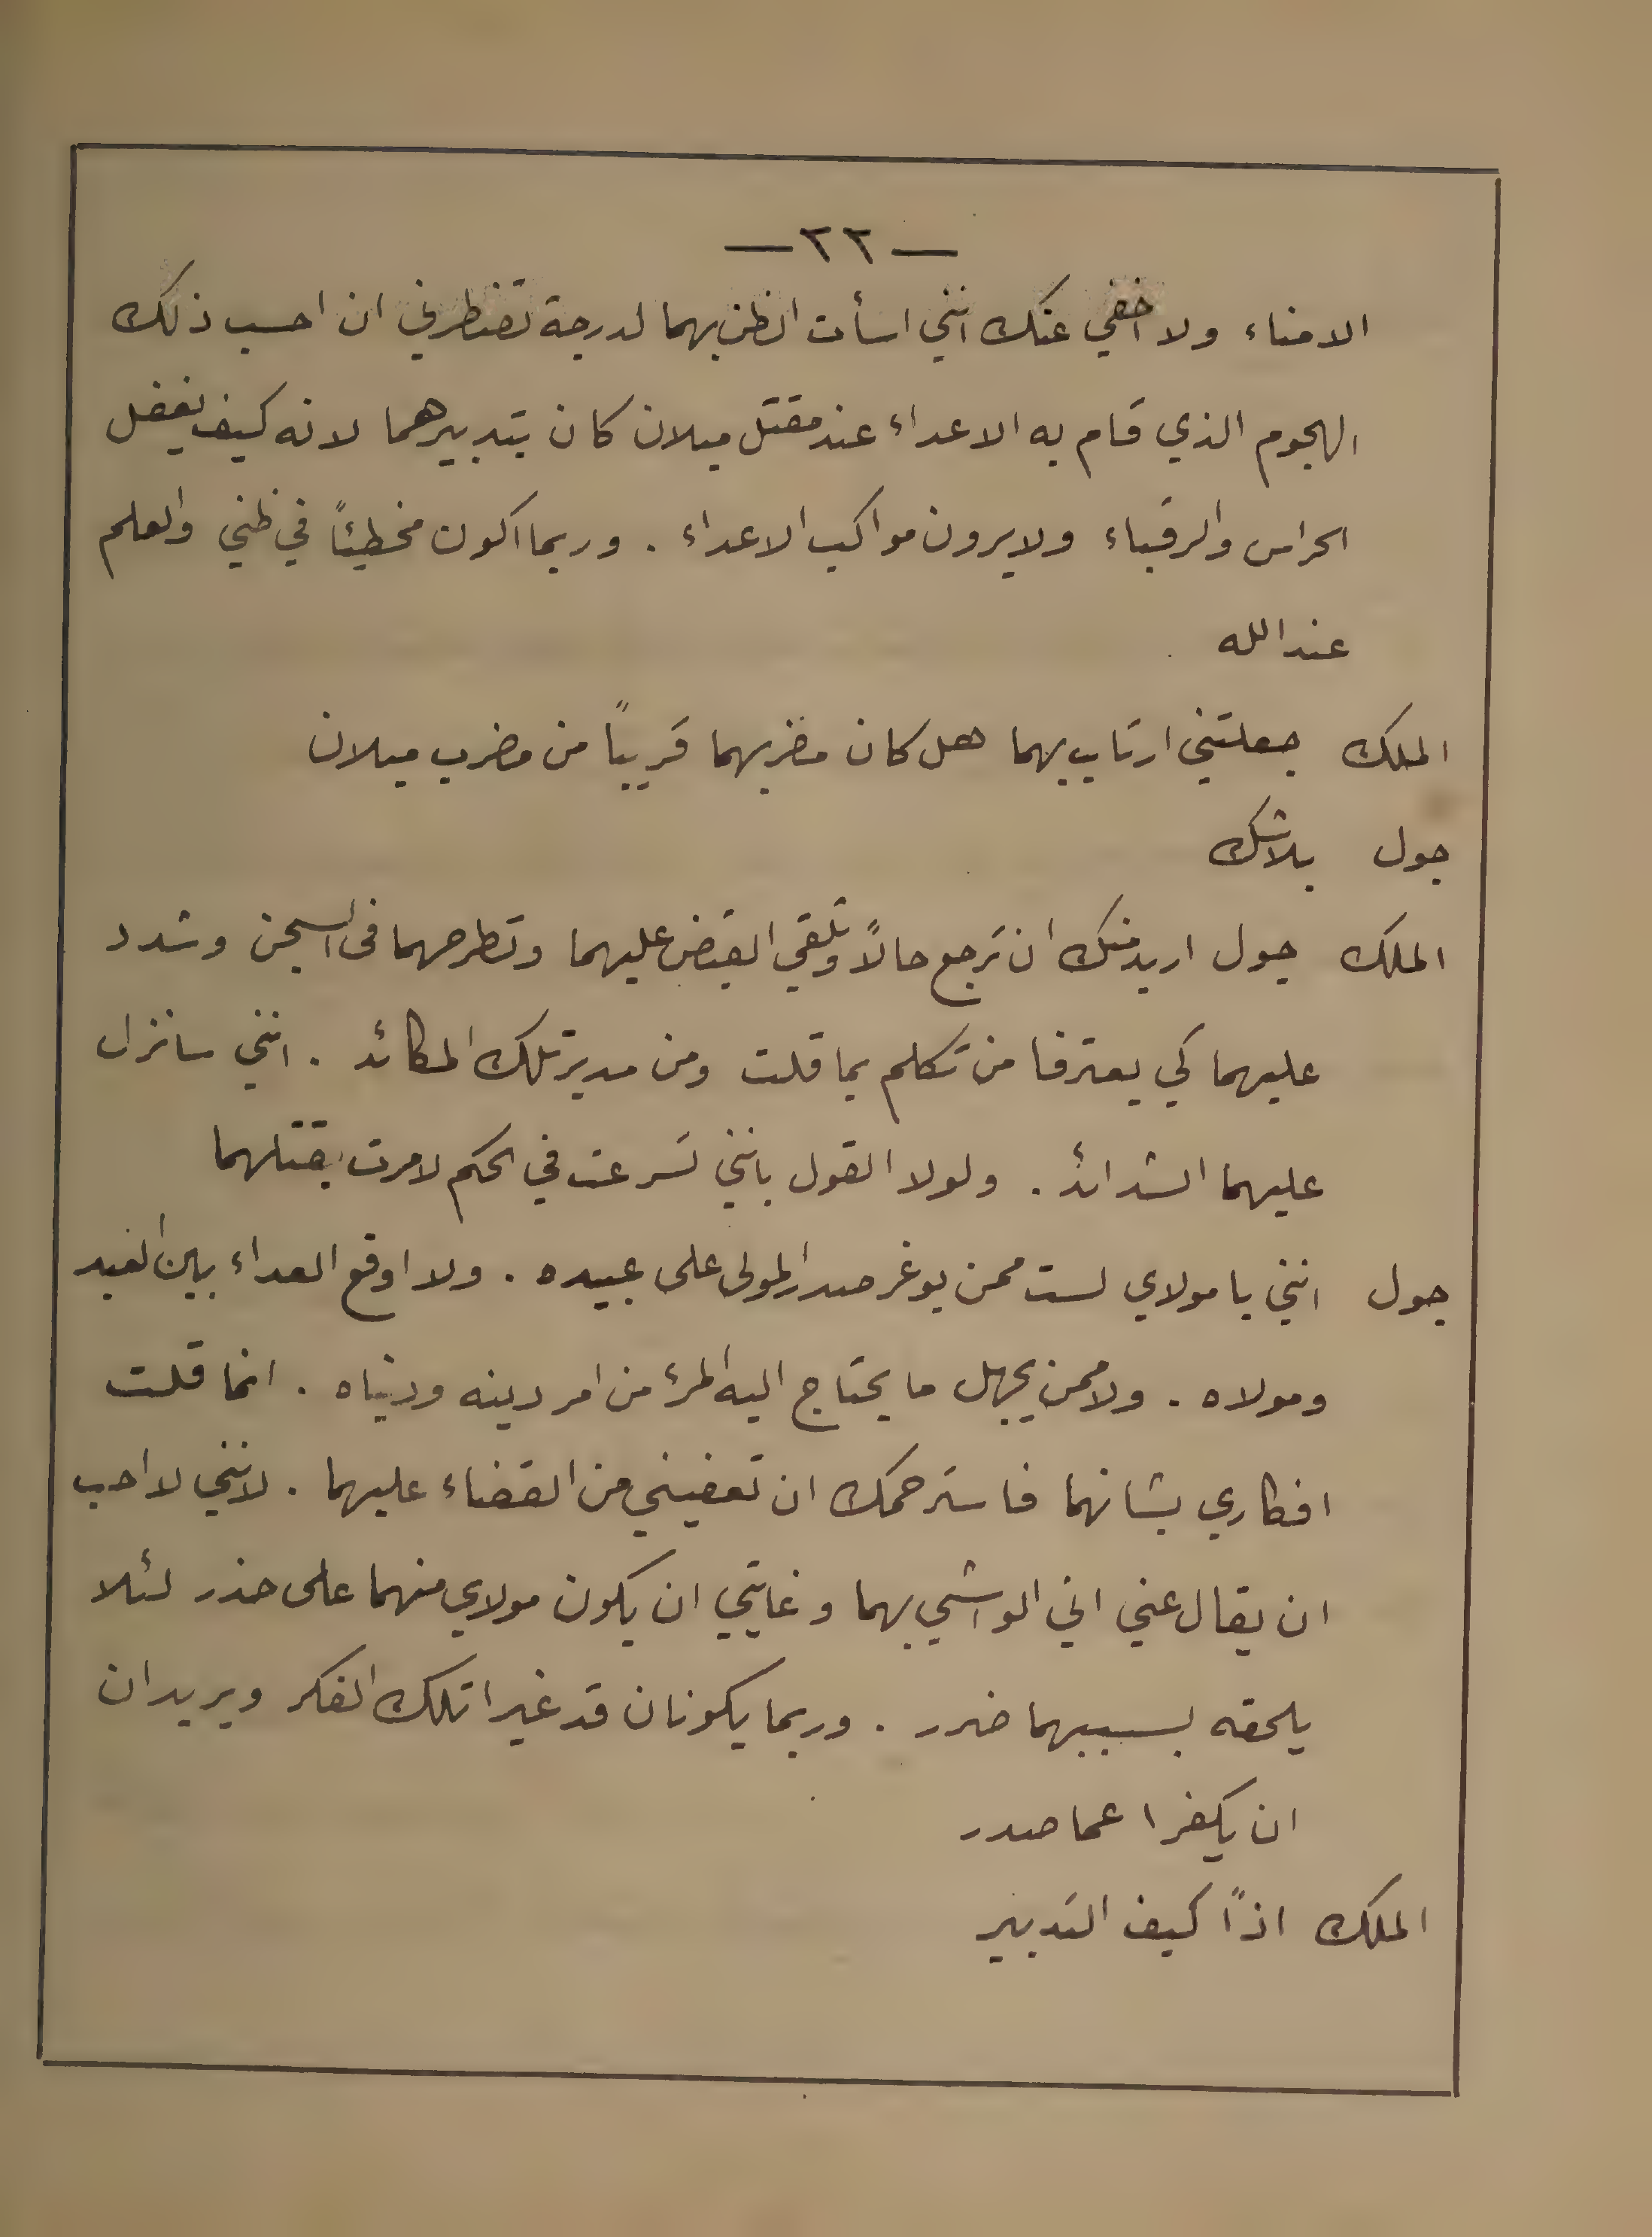 — ٢٢ —
الامناء ولا اخفي عنك انني اسأت الظن بهما لدرجة تضطرني ان احسب ذلك
الهجوم الذي قام به الاعداء عند مقتل ميلان كان بتدبيرهما لانه كيف يغفل
الحراس والرقباء ولا يرون مواكب الاعداء . وربما اكون مخطئاً في ظني والعلم
عند الله
الملك جعلتني ارتاب بهما هل كان مضربهما قريباً من مضرب ميلان
جول بلاشك
الملك جول اريد منك ان ترجع حالاً وتلقي القبض عليهما وتطرحهما في السجن وشدد
عليهما كي يعترفا من تكلم بما قلت ومن مدبر تلك المكائد . انني سانزل
عليهما الشدائد . ولولا القول بانني تسرعت في الحكم لامرت بقتلهما
جول انني يا مولاي لست ممن يوغر صدر المولى على عبيده . ولا اوقع العداء بين العبد
ومولاه . ولا ممن يجهل ما يحتاج اليه المرء من امر دينه ودنياه . انما قلت
افكاري بشانهما فاسترحمك ان تعفيني من القضاء عليهما . لانني لا احب
ان يقال عني اني الواشي بهما وغايتي ان يكون مولاي منهما على حذر لئلا
يلحقه بسببهما ضرر . وربما يكونان قد غيرا تلك الفكر ويريدان
ان يكفرا عما صدر
الملك اذاً كيف التدبير